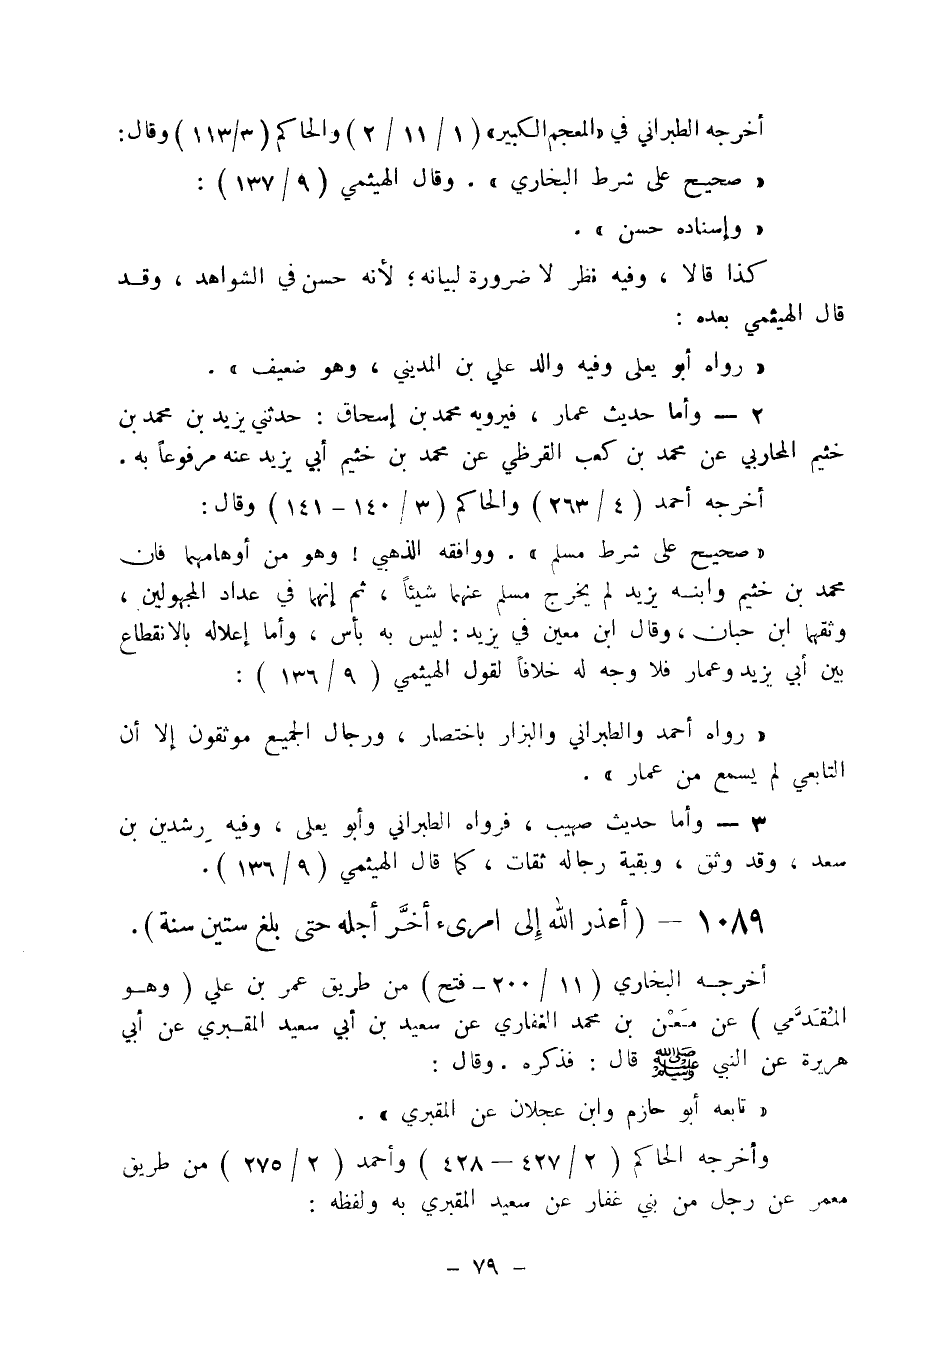 أخرجه الطبراني في «المعجم الكبير» ( ١ / ١١ / ٢ ) والحاكم ( ٣/ ١١٣ ) وقال:
« صحيح على شرط البخاري » . وقال الهيثمي ( ٩ / ١٣٧ ) :
« وإسناده حسن » .
كذا قالا ، وفيه نظر لا ضرورة لبيانه؛ لأنه حسن في الشواهد ، وقد
قال الهيثمي بعده :
« رواه أبو يعلى وفيه والد علي بن المديني ، وهو ضعيف » .
٢ — وأما حديث عمار ، فيرويه محمد بن إسحاق : حدثني يزيد بن محمد بن
خثيم المحاربي عن محمد بن كعب القرظي عن محمد بن خثيم أبي يزيد عنه مرفوعاً به .
أخرجه أحمد ( ٤ / ٢٦٣ ) والحاكم ( ٣ / ١٤٠ – ١٤١ ) وقال :
« صحيح على شرط مسلم » . ووافقه الذهبي ! وهو من أوهامهما فان
محمد بن خثيم وابنه يزيد لم يخرج مسلم عنهما شيئاً ، ثم إنهما في عداد المجهولين ،
وثقهما ابن حبان ، وقال ابن معين في يزيد : ليس به بأس ، وأما إعلاله بالانقطاع
بين أبي يزيد وعمار فلا وجه له خلافاً لقول الهيثمي ( ٩ / ١٣٦ ) :
« رواه أحمد والطبراني والبزار باختصار ، ورجال الجميع موثقون إلا أن
التابعي لم يسمع من عمار » .
٣ — وأما حديث صهيب ، فرواه الطبراني وأبو يعلى ، وفيه رشدين بن
سعد ، وقد وثق ، وبقية رجاله ثقات ، كما قال الهيثمي ( ٩ / ١٣٦ ) .
١٠٨٩ — ( أعذر الله إلى امرىء أخَّر أجله حتى بلغ ستين سنة ) .
أخرجه البخاري ( ١١ / ٢٠٠ – فتح ) من طريق عمر بن علي ( وهو
المُقَدَّمي ) عن مَعْن بن محمد الغفاري عن سعيد بن أبي سعيد المقبري عن أبي
هريرة عن النبي ﷺ قال : فذكره . وقال :
« تابعه أبو حازم وابن عجلان عن المقبري » .
وأخرجه الحاكم ( ٢ / ٤٢٧ — ٤٢٨ ) وأحمد ( ٢ / ٢٧٥ ) من طريق
معمر عن رجل من بني غفار عن سعيد المقبري به ولفظه :
– ٧٩ –